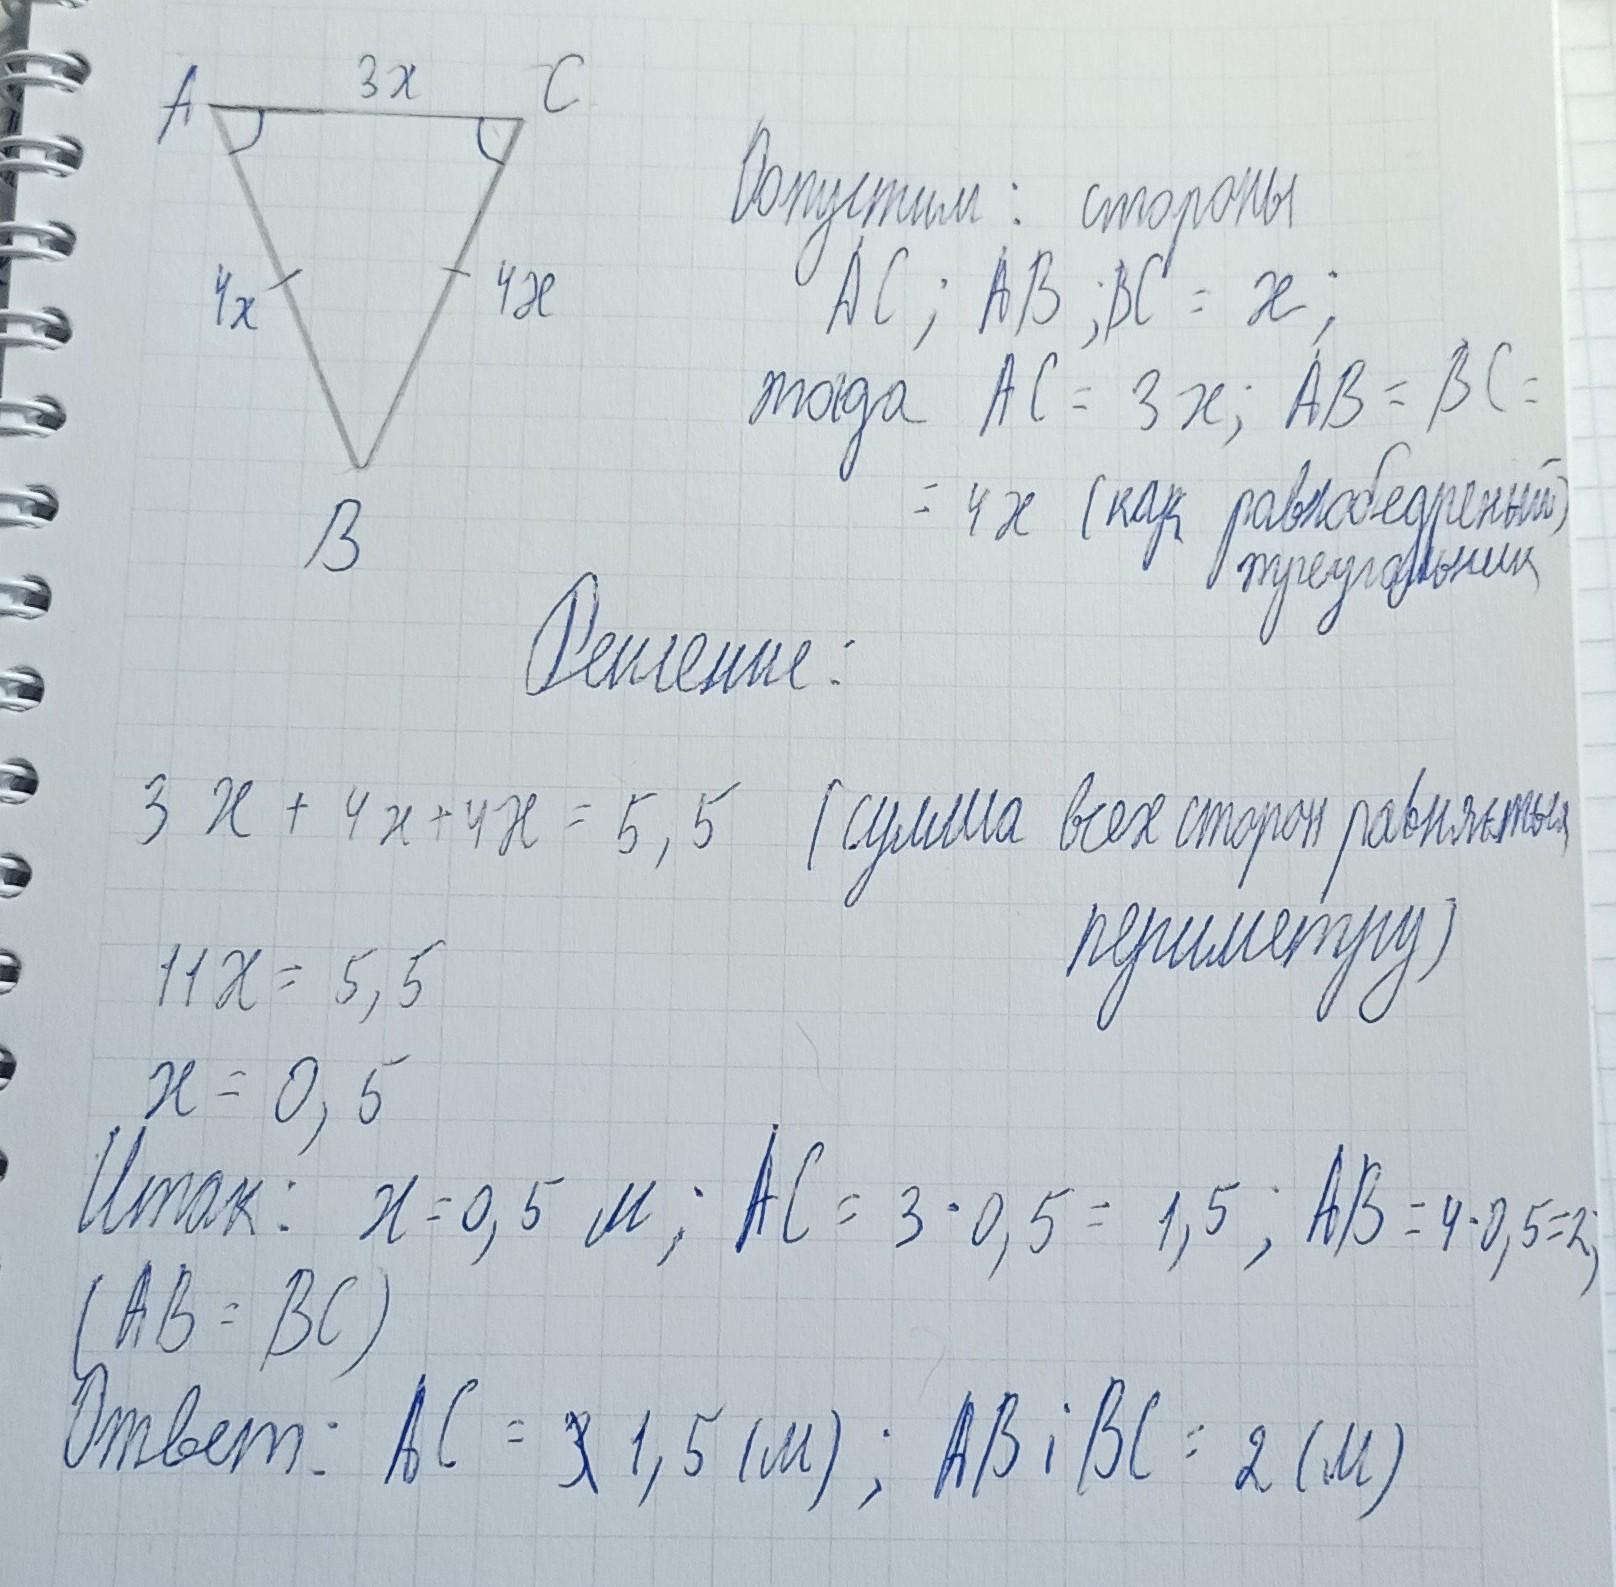 A 3x C
4x 4x
B
Допустим: стороны
AC; AB; BC = x;
тогда AC = 3x; AB = BC =
= 4x (как равнобедреный)
треугольник
Решение:
3x + 4x + 4x = 5,5 (сумма всех сторон равняеться
периметру)
11x = 5,5
x = 0,5
Итак: x = 0,5 м; AC = 3 · 0,5 = 1,5; AB = 4 · 0,5 = 2;
(AB = BC)
Ответ: AC = 1,5 (м); AB i BC = 2 (м)